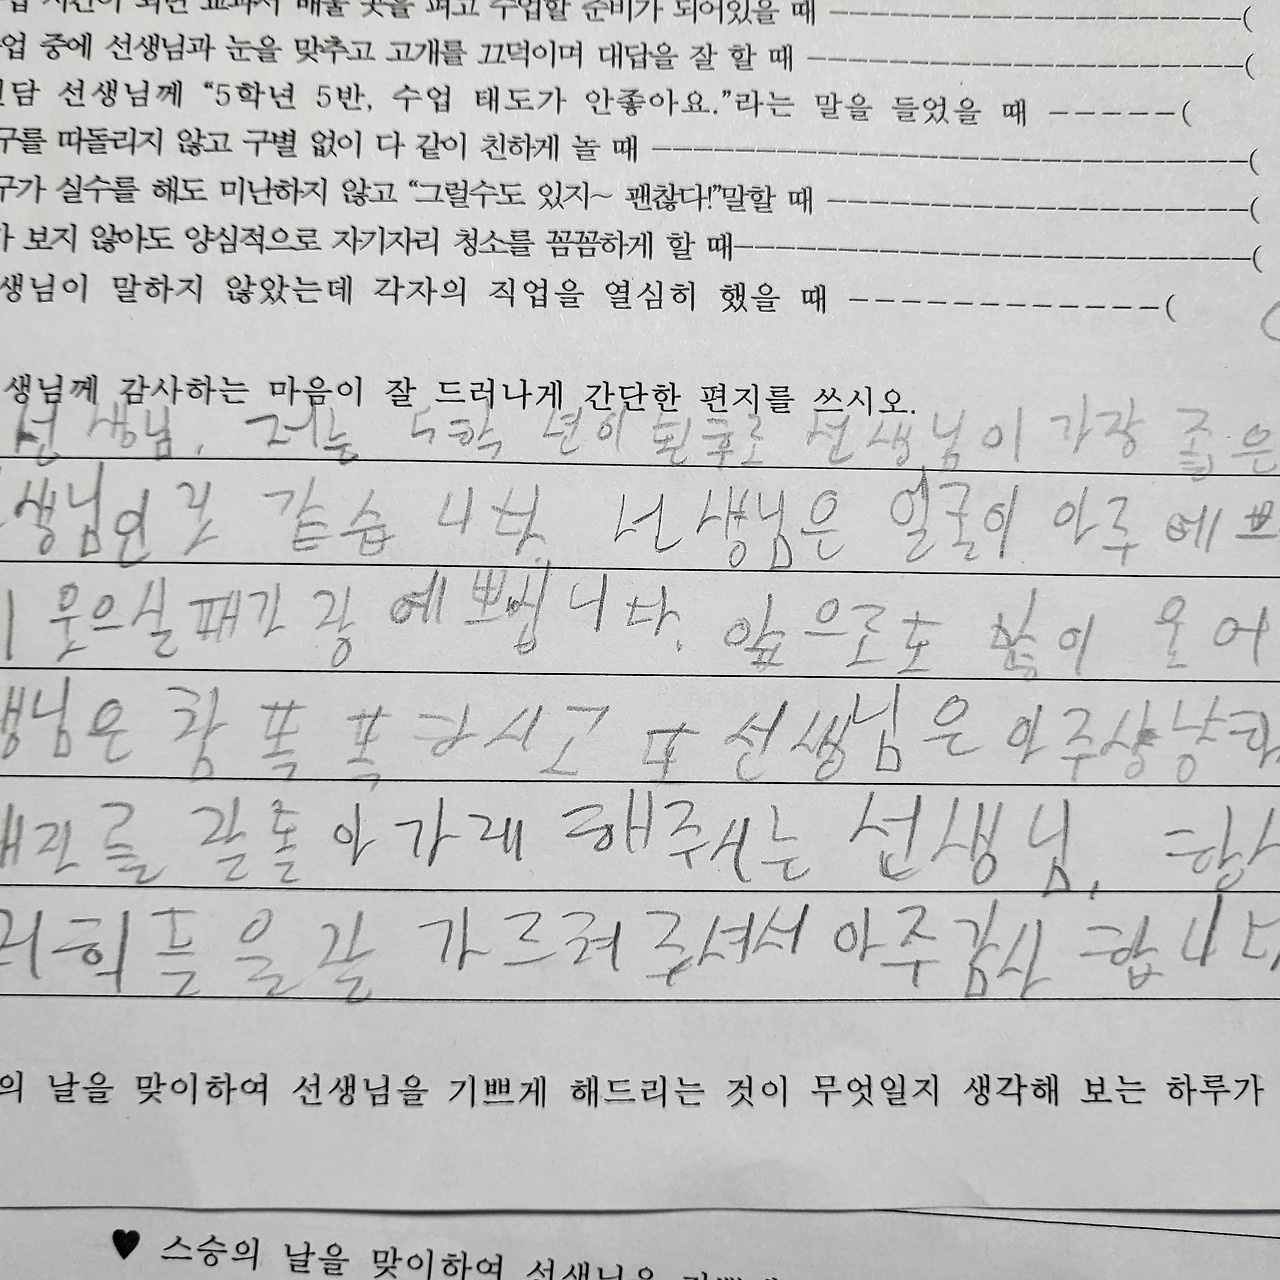 시간이 되면 교과서 배울 곳을 펴고 수업할 준비가 되어있을 때 ------------------------(
업 중에 선생님과 눈을 맞추고 고개를 끄덕이며 대답을 잘 할 때 --------------------------(
담 선생님께 “5학년 5반, 수업 태도가 안좋아요.”라는 말을 들었을 때 -----(
구를 따돌리지 않고 구별 없이 다 같이 친하게 놀 때 -----------------------------------(
구가 실수를 해도 미난하지 않고 “그럴수도 있지~ 괜찮다!”말할 때 -------------------------(
가 보지 않아도 양심적으로 자기자리 청소를 꼼꼼하게 할 때-------------------------------(
생님이 말하지 않았는데 각자의 직업을 열심히 했을 때 ------------(
생님께 감사하는 마음이 잘 드러나게 간단한 편지를 쓰시오.
선생님, 저는 5학년이 된후로 선생님이 가장 좁은
생님인 것 같습니다. 선생님은 얼굴이 아주 예쁘
웃으실때가장 예쁩니다. 앞으로도 이 웃어
생님은 참 폭폭하시고 또 선생님은 아주상냥하
를 잘돌아가게 해주시는 선생님, 항상
저희들을잘 가르려주셔서 아주감사 합니다
의 날을 맞이하여 선생님을 기쁘게 해드리는 것이 무엇일지 생각해 보는 하루가
♥ 스승의 날을 맞이하여 선생님을